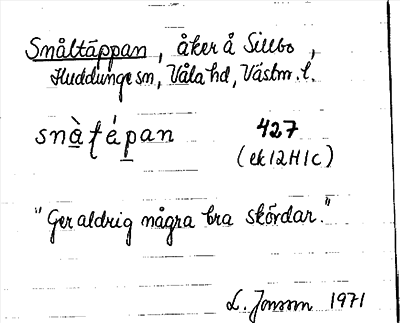 Snåltäppan, åker å Sillbo,
Huddunge sn, Våla hd, Västm. l.
snàtápan 427
(ek 12 H 1 c)
"Ger aldrig några bra skördar."
L. Jonsson 1971